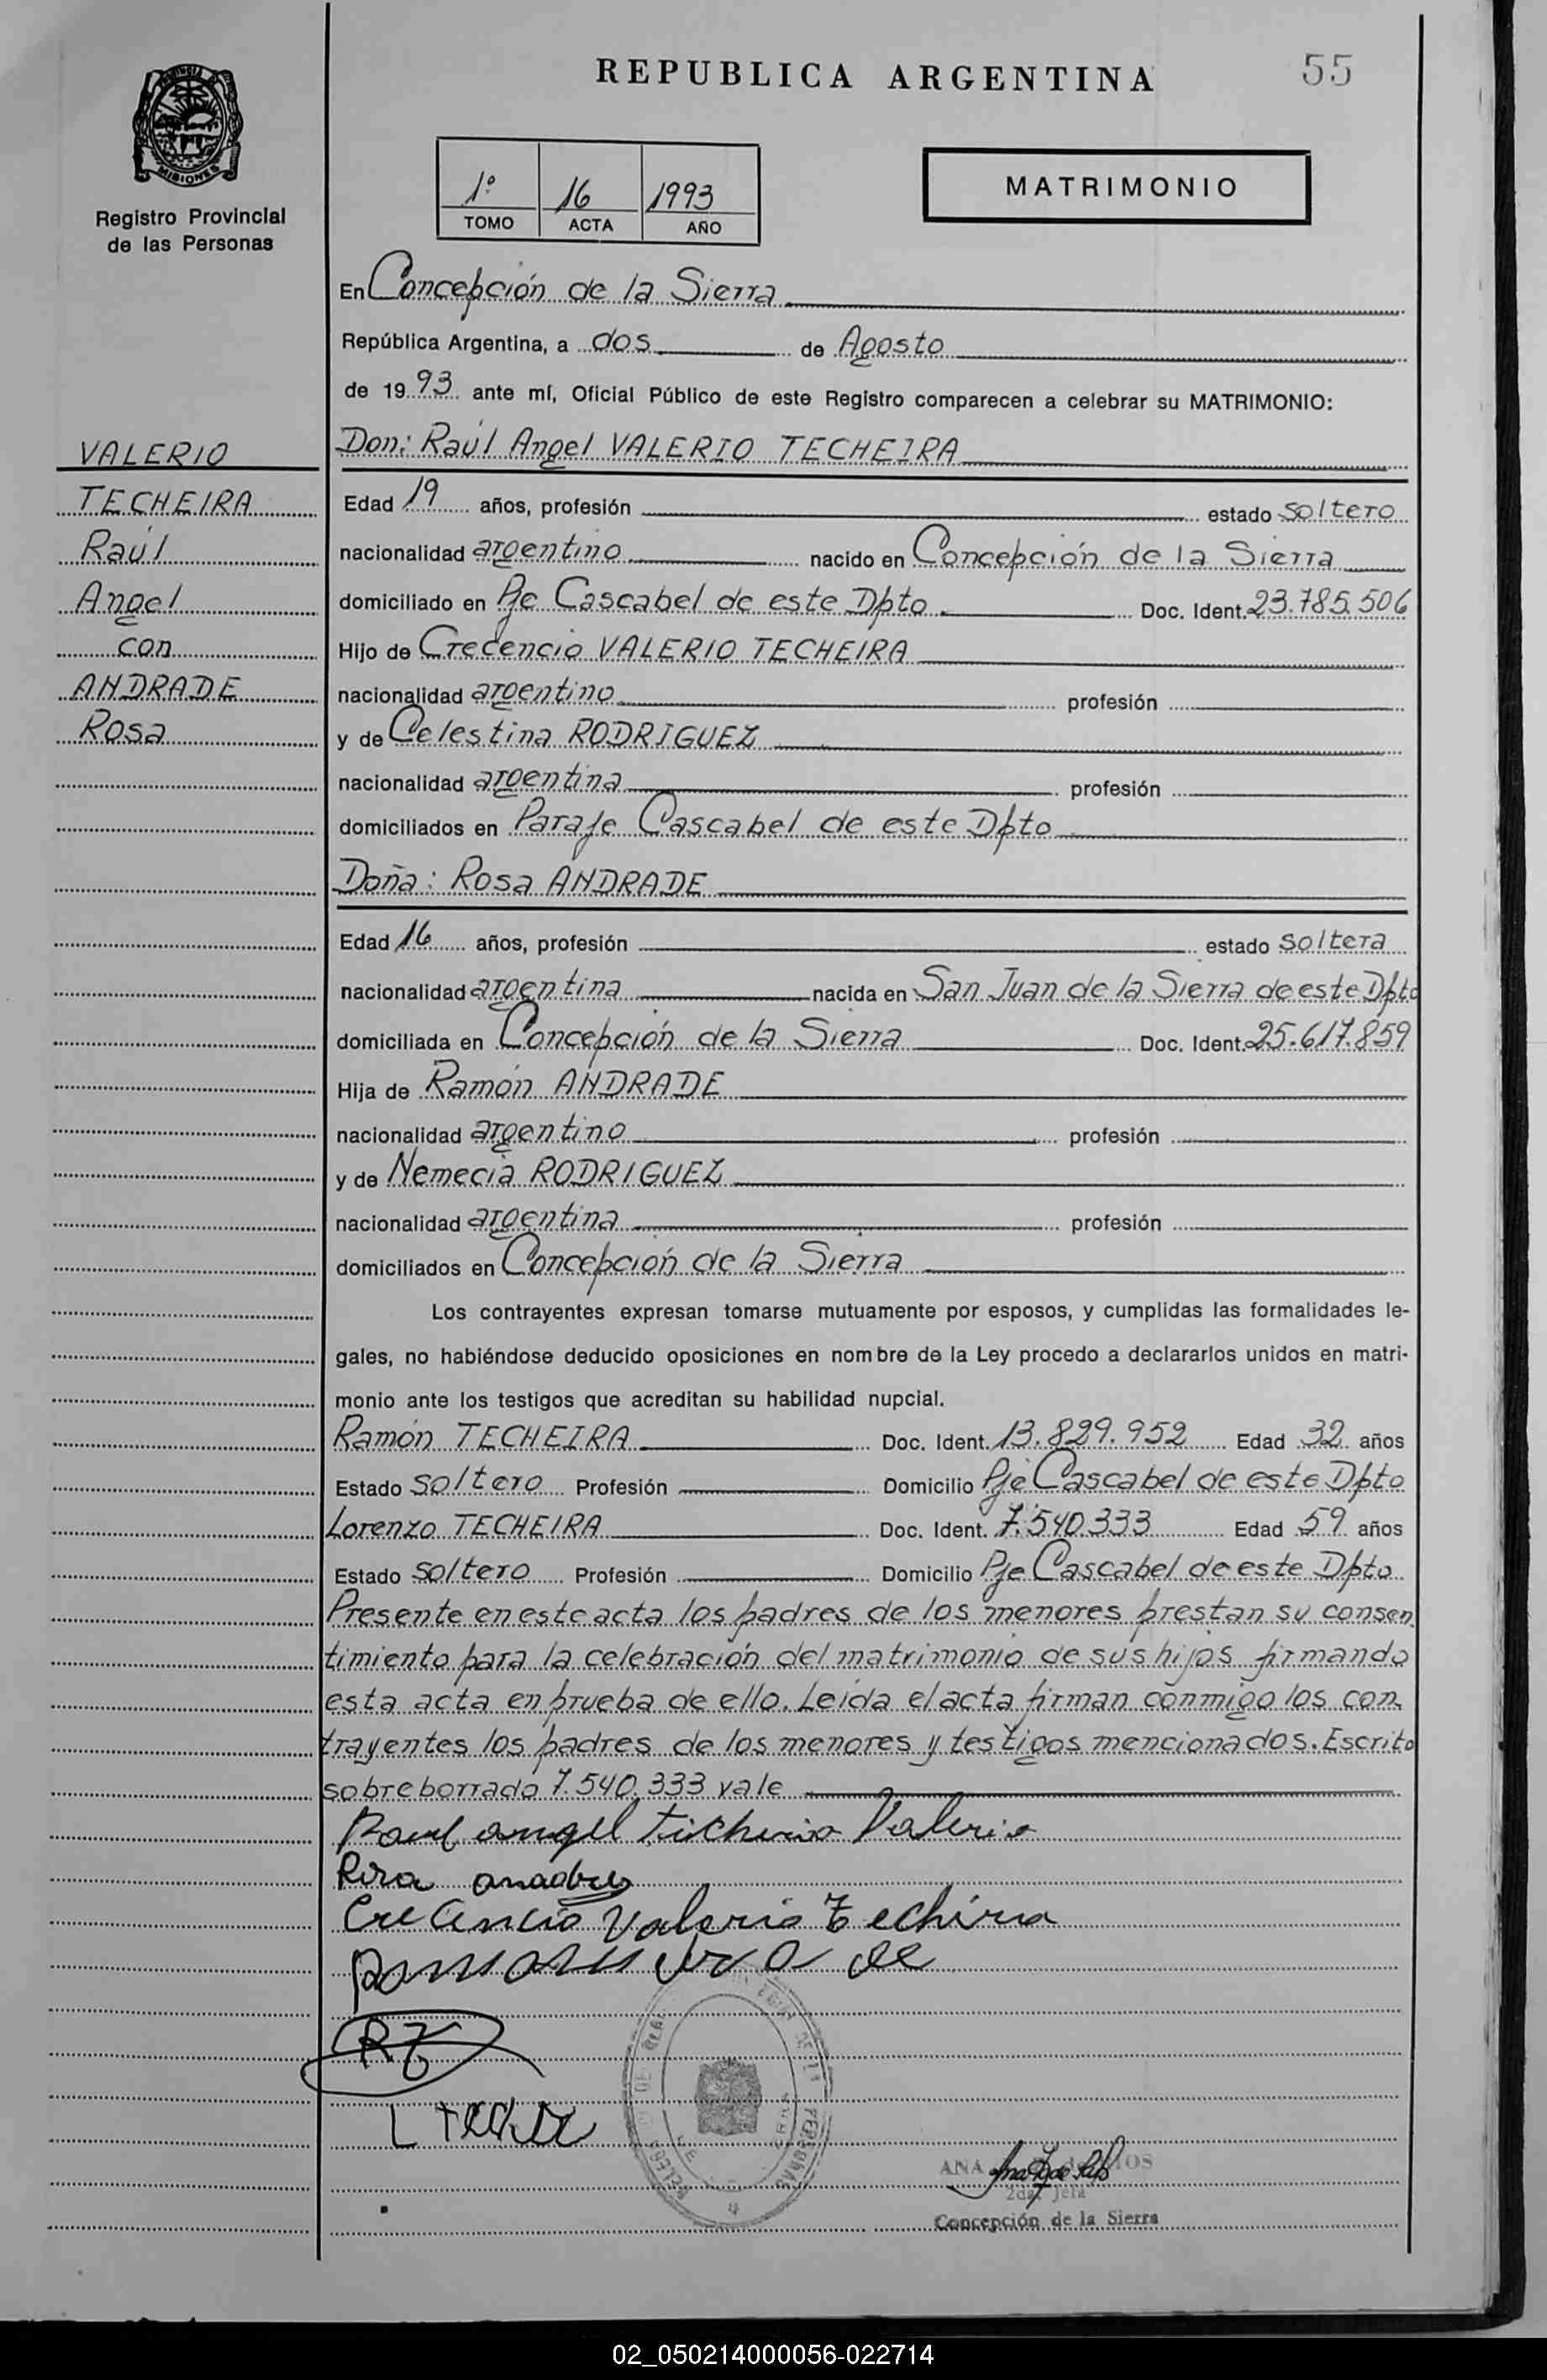 REPUBLICA ARGENTINA
55
MISIONES
Registro Provincial
de las Personas
1º 16 1993
TOMO ACTA AÑO
MATRIMONIO
En Concepción de la Sierra
República Argentina, a dos de Agosto
de 1993 ante mí, Oficial Público de este Registro comparecen a celebrar su MATRIMONIO:
VALERIO
TECHEIRA
Raúl
Angel
con
ANDRADE
Rosa
Don: Raúl Angel VALERIO TECHEIRA
Edad 19 años, profesión estado soltero
nacionalidad argentino nacido en Concepción de la Sierra
domiciliado en Pje Cascabel de este Dpto. Doc. Ident. 23.785.506
Hijo de Crecencio VALERIO TECHEIRA
nacionalidad argentino profesión
y de Celestina RODRIGUEZ
nacionalidad argentina profesión
domiciliados en Paraje Cascabel de este Dpto
Doña: Rosa ANDRADE
Edad 16 años, profesión estado soltera
nacionalidad argentina nacida en San Juan de la Sierra de este Dpto
domiciliada en Concepción de la Sierra Doc. Ident. 25.617.859
Hija de Ramón ANDRADE
nacionalidad argentino profesión
y de Nemecia RODRIGUEZ
nacionalidad argentina profesión
domiciliados en Concepción de la Sierra
Los contrayentes expresan tomarse mutuamente por esposos, y cumplidas las formalidades le-
gales, no habiéndose deducido oposiciones en nombre de la Ley procedo a declararlos unidos en matri-
monio ante los testigos que acreditan su habilidad nupcial.
Ramón TECHEIRA Doc. Ident. 13.829.952 Edad 32 años
Estado soltero Profesión Domicilio Pje Cascabel de este Dpto
Lorenzo TECHEIRA Doc. Ident. 7.540.333 Edad 59 años
Estado soltero Profesión Domicilio Pje Cascabel de este Dpto
Presente en este acta los padres de los menores prestan su consen
timiento para la celebración del matrimonio de sus hijos firmando
esta acta en prueba de ello. Leída el acta firman conmigo los con
trayentes los padres de los menores y testigos mencionados. Escrito
sobreborrado 7.540.333 vale
Raul angel Valerio
Rosa
Valerio Techira
RT
L
ANA
2da. Jefa
Concepción de la Sierra
02_050214000056-022714